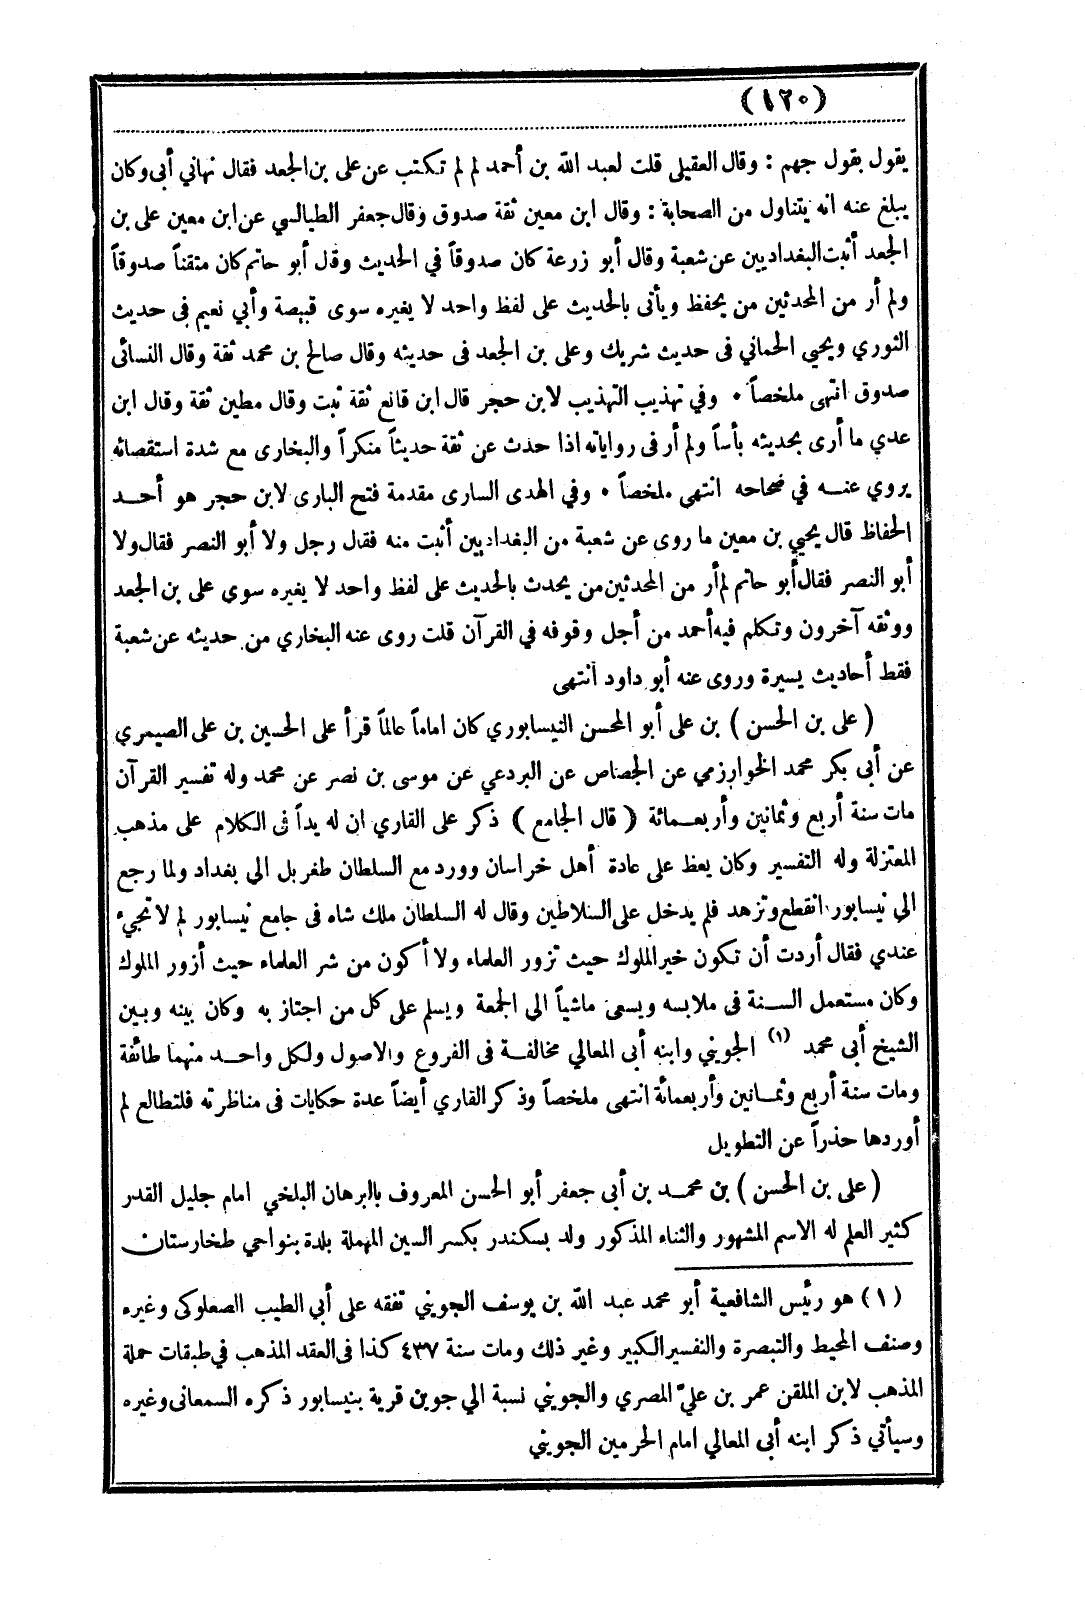 (١٢٠)
يقول بقول جهم : وقال العقيلى قلت لعبد الله بن أحمد لم لم تكتب عن على بن الجعد فقال نهاني أبى وكان
يبلغ عنه انه يتناول من الصحابة : وقال ابن معين ثقة صدوق وقال جعفر الطيالسي عن ابن معين على بن
الجعد أثبت البغداديين عن شعبة وقال أبو زرعة كان صدوقاً في الحديث وقل أبو حاتم كان متقناً صدوقاً
ولم أر من المحدثين من يحفظ ويأتى بالحديث على لفظ واحد لا يغيره سوى قبيصة وأبي نعيم فى حديث
الثوري ويحيي الحماني فى حديث شريك وعلى بن الجعد فى حديثه وقال صالح بن محمد ثقة وقال النسائى
صدوق انتهى ملخصاً . وفي تهذيب التهذيب لابن حجر قال ابن قانع ثقة ثبت وقال مطين ثقة وقال ابن
عدي ما أرى بحديثه بأساً ولم أر فى رواياته اذا حدث عن ثقة حديثاً منكراً والبخارى مع شدة استقصائه
يروي عنـــه في صحاحه انتهي ملخصاً . وفي الهدى السارى مقدمة فتح البارى لابن حجر هو أحـــد
الحفاظ قال يحيي بن معين ما روى عن شعبة من البغداديين أثبت منه فقال رجل ولا أبو النصر فقال ولا
أبو النصر فقال أبو حاتم لم أر من المحدثين من يحدث بالحديث على لفظ واحد لا يغيره سوى على بن الجعد
ووثقه آخرون وتكلم فيه أحمد من أجل وقوفه في القرآن قلت روى عنه البخاري من حديثه عن شعبة
فقط أحاديث يسيرة وروى عنه أبو داود انتهى
( على بن الحسن ) بن على أبو المحسن النيسابوري كان اماماً عالماً قرأ على الحسين بن على الصيمري
عن أبى بكر محمد الخوارزمي عن الجصاص عن البردعي عن موسى بن نصر عن محمد وله تفسير القرآن
مات سنة أربع وثمانين وأربعــمائة ( قال الجامع ) ذكر على القاري ان له يداً فى الكلام على مذهب
المعتزلة وله التفسير وكان يعظ على عادة أهل خراسان وورد مع السلطان طغربل الي بغداد ولما رجع
الي نيسابور انقطع وتزهد فلم يدخل على السلاطين وقال له السلطان ملك شاه فى جامع نيسابور لم لا تجيء
عندي فقال أردت أن تكون خير الملوك حيث تزور العلماء ولا أكون من شر العلماء حيث أزور الملوك
وكان مستعمل الســنة فى ملابسه ويسعى ماشياً الي الجمعة ويسلم على كل من اجتاز به وكان بينه وبـين
الشيخ أبى محمد (١) الجويني وابنه أبى المعالي مخالفـة فى الفروع والاصول ولكل واحـــد منهما طائفة
ومات سنة أربع وثمـانين وأربعمائة انتهى ملخصاً وذكر القاري أيضاً عدة حكايات فى مناظرته فلتطالع لم
أوردها حذراً عن التطويل
( على بن الحسن ) بن محمـــد بن أبي جعفر أبو الحسن المعروف بالبرهان البلخي امام جليل القدر
كثير العلم له الاسم المشهور والثناء المذكور ولد بسكندر بكسر السين المهملة بلدة بنواحي طخارستان
(١) هو رئيس الشافعية أبو محمد عبد الله بن يوسف الجويني تفقه على أبي الطيب الصعلوكى وغيره
وصنف المحيط والتبصرة والتفسير الكبير وغير ذلك ومات سنة ٤٣٧ كذا فى العقد المذهب في طبقات حملة
المذهب لابن الملقن عمر بن عليّ المصري والجويني نسبة الي جوين قرية بنيسابور ذكره السمعانى وغيره
وسيأتي ذكر ابنه أبى المعالي امام الحرمين الجويني